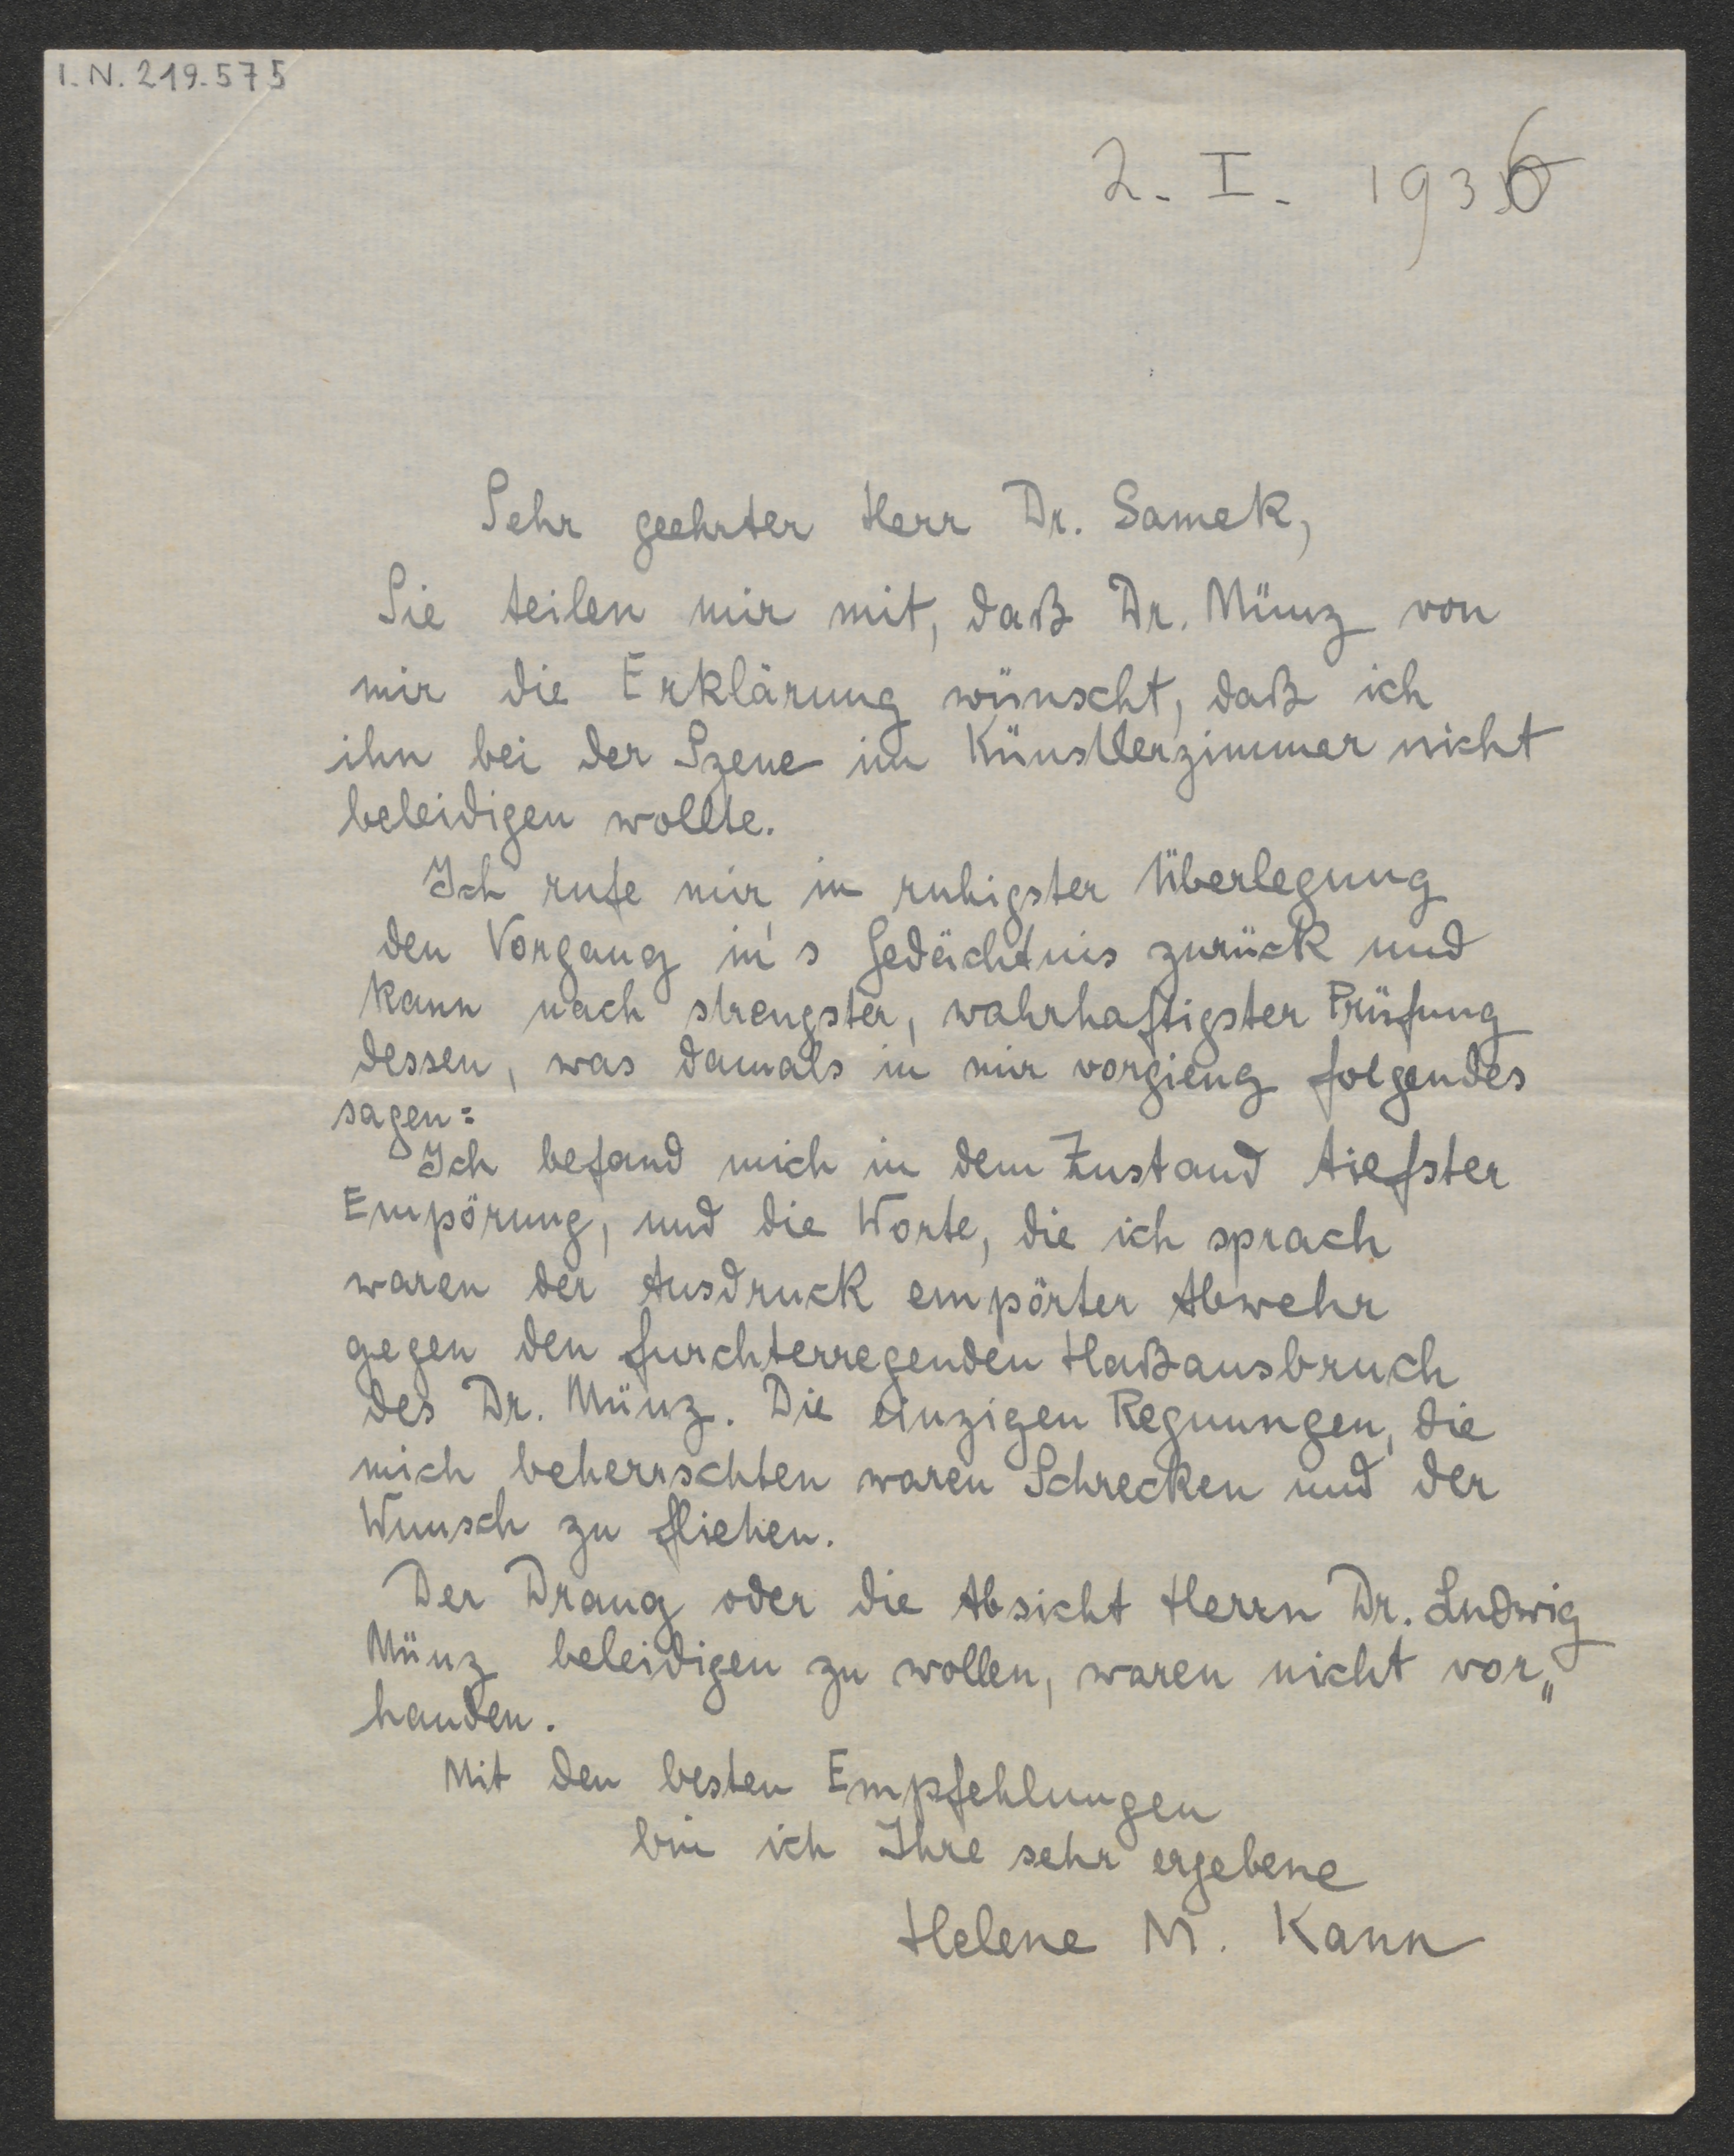 I. N. 219.575
2. I. 1936
Sehr geehrter Herr Dr. Samek,
Sie teilen mir mit, daß Dr. Münz von
mir die Erklärung wünscht, daß ich
ihn bei der Szene im Künstlerzimmer nicht
beleidigen wollte.
Ich rufe mir in ruhigster Überlegung
den Vorgang in's Gedächtnis zurück und
kann nach strengster, wahrhaftigster Prüfung
dessen, was damals in mir vorgieng folgendes
sagen:
Ich befand mich in dem Zustand tiefster
Empörung, und die Worte, die ich sprach
waren der Ausdruck empörter Abwehr
gegen den furchterregenden Haßausbruch
des Dr. Münz. Die einzigen Regungen, die
mich beherrschten waren Schrecken und der
Wunsch zu fliehen.
Der Drang oder die Absicht Herrn Dr. Ludwig
Münz beleidigen zu wollen, waren nicht vor„
handen.
Mit den besten Empfehlungen
bin ich Ihre sehr ergebene
Helene M. Kann